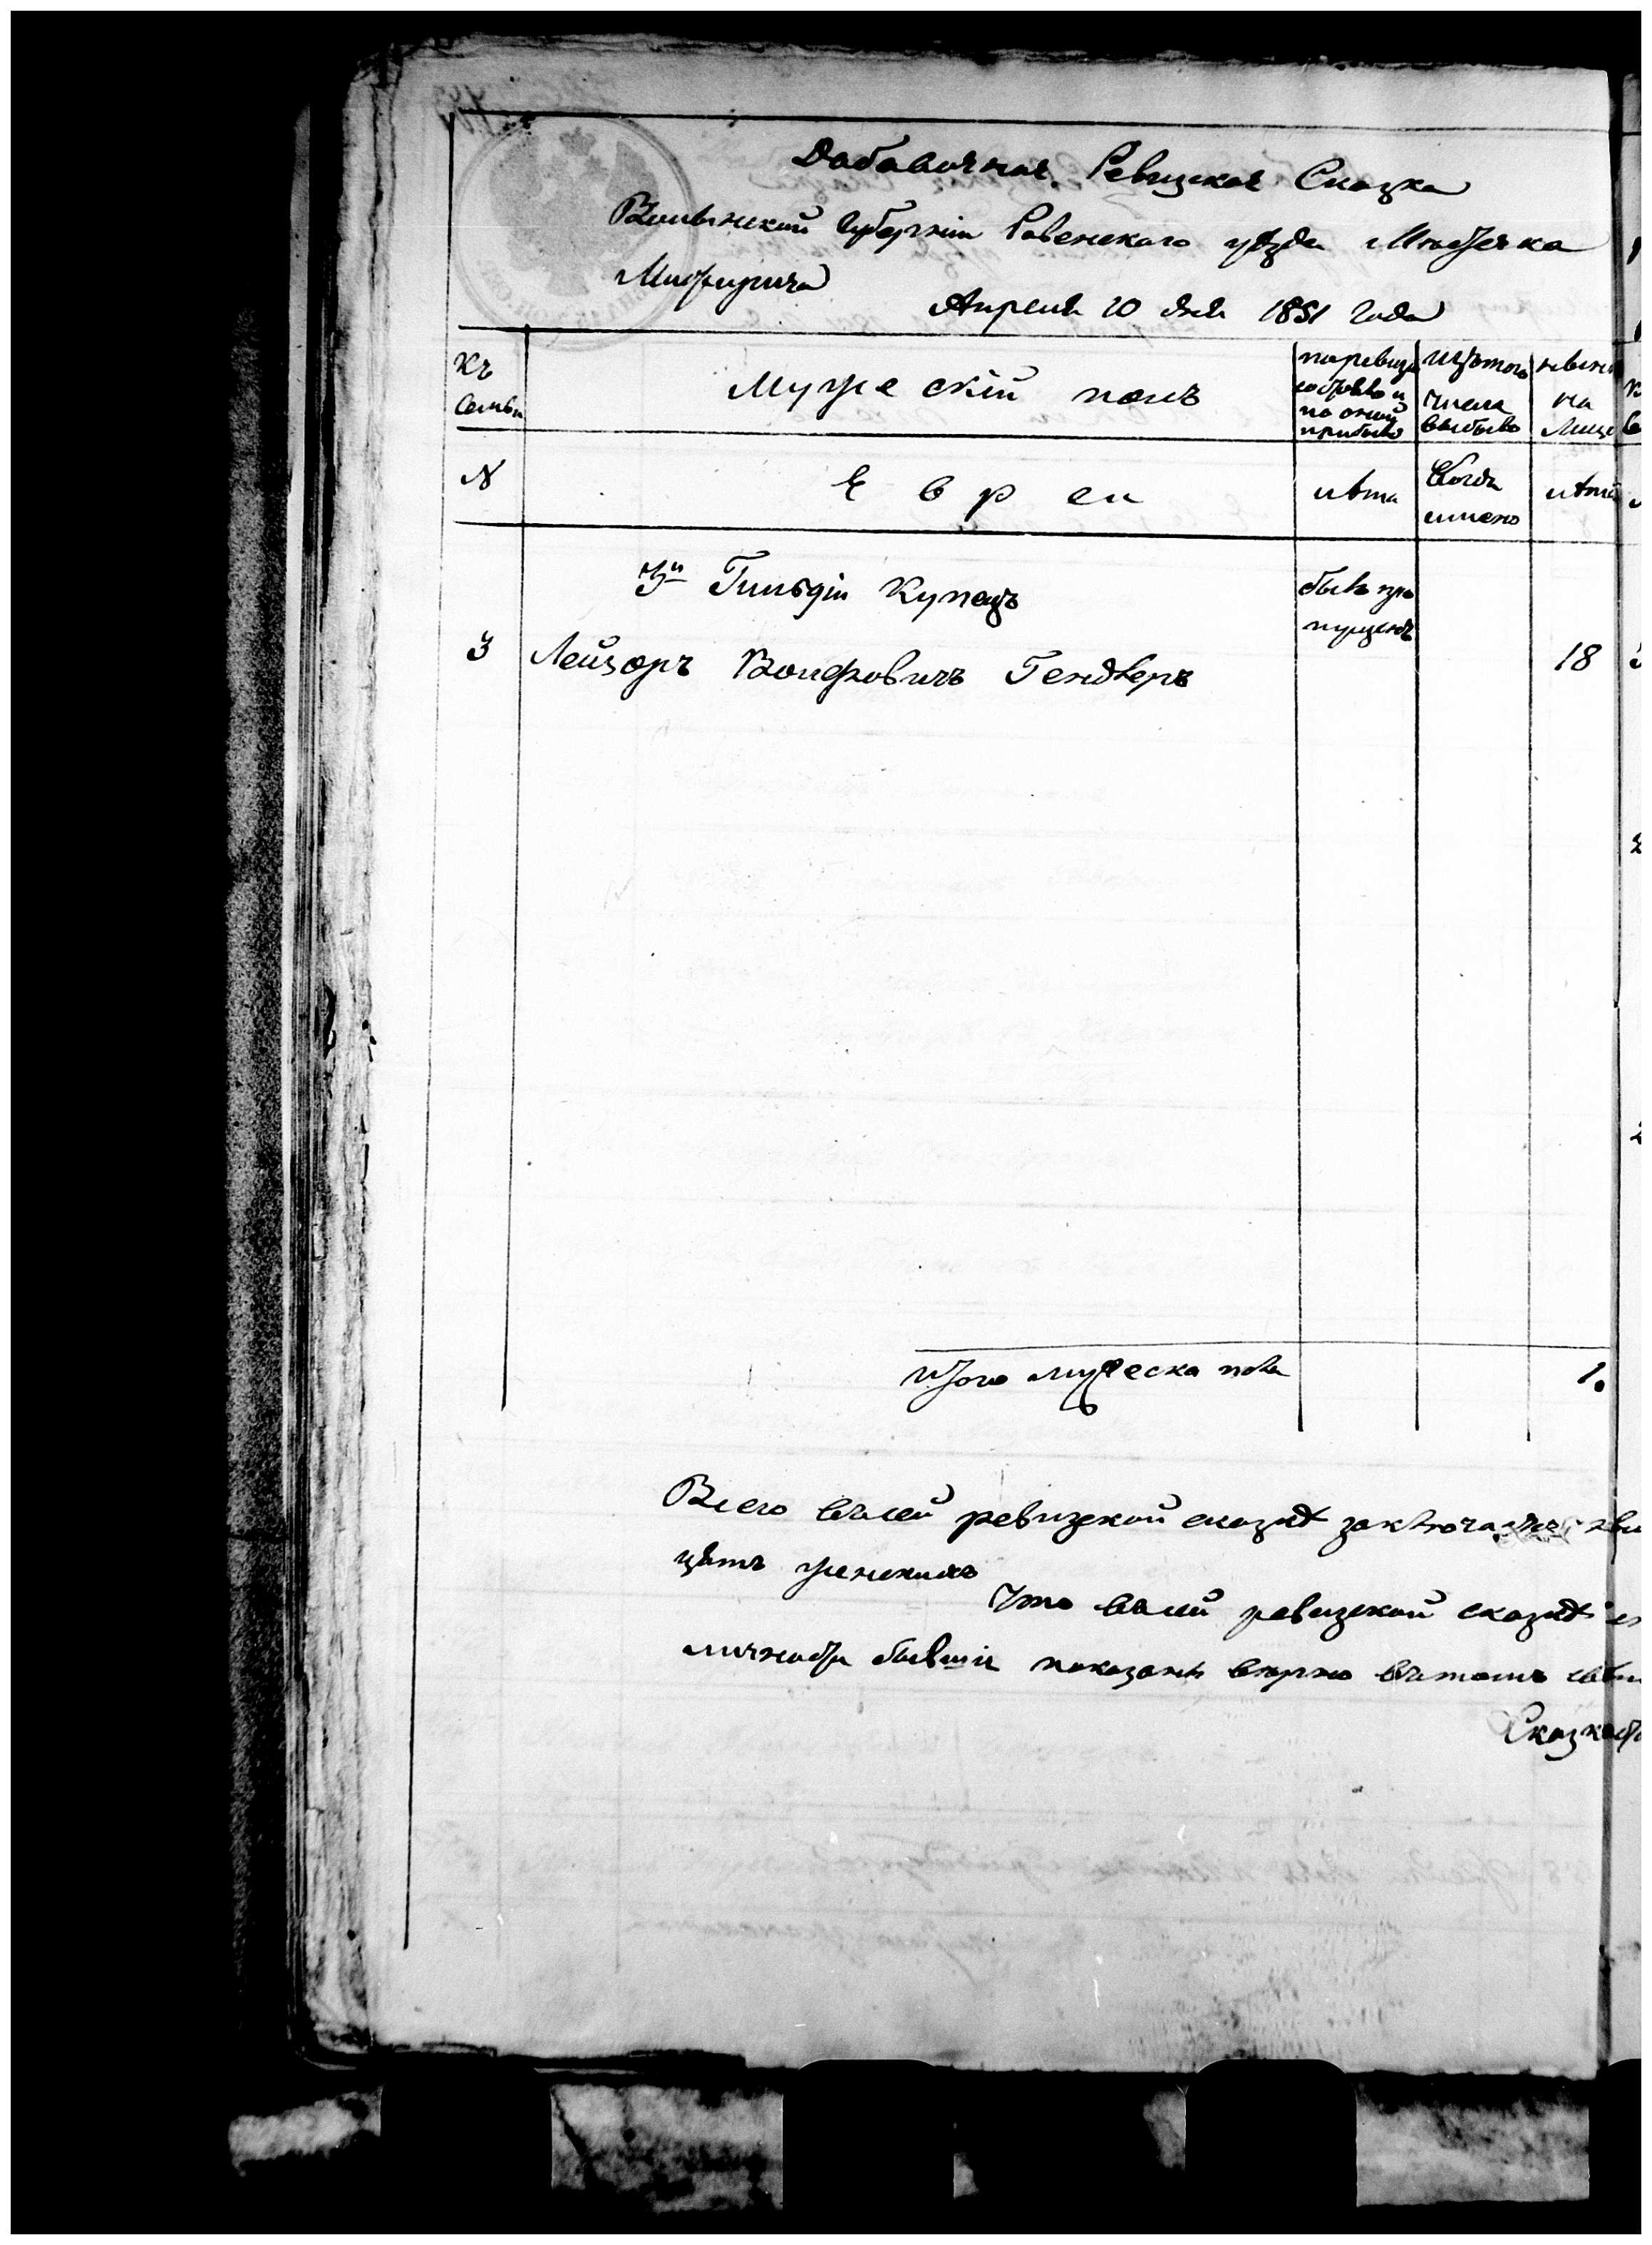 Добавочная Ревизская Сказка
Волынской Губерніи Ровенского уѣзда Мѣстечка
Межирича
Апреля 10 дня 1851 Года
Къ
Семьи
Мужескій полъ
по ревиз
состояло и
по оной
прибыло
Изтого
числа
выбыло
нынѣ
на
Лице
N
Евреи
лѣта
Когда
имено
лѣта
3й Гильдіи Купецъ
былъ про
пущенъ
3 Лейзоръ Волфовичъ Гендлеръ 18
Итого мужеска пола 1.
Всего въсей ревизской сказкѣ заключается
цѣтъ женскихъ
Что въсей ревизской сказкѣ
бывшіе показаны вѣрно вътомъ